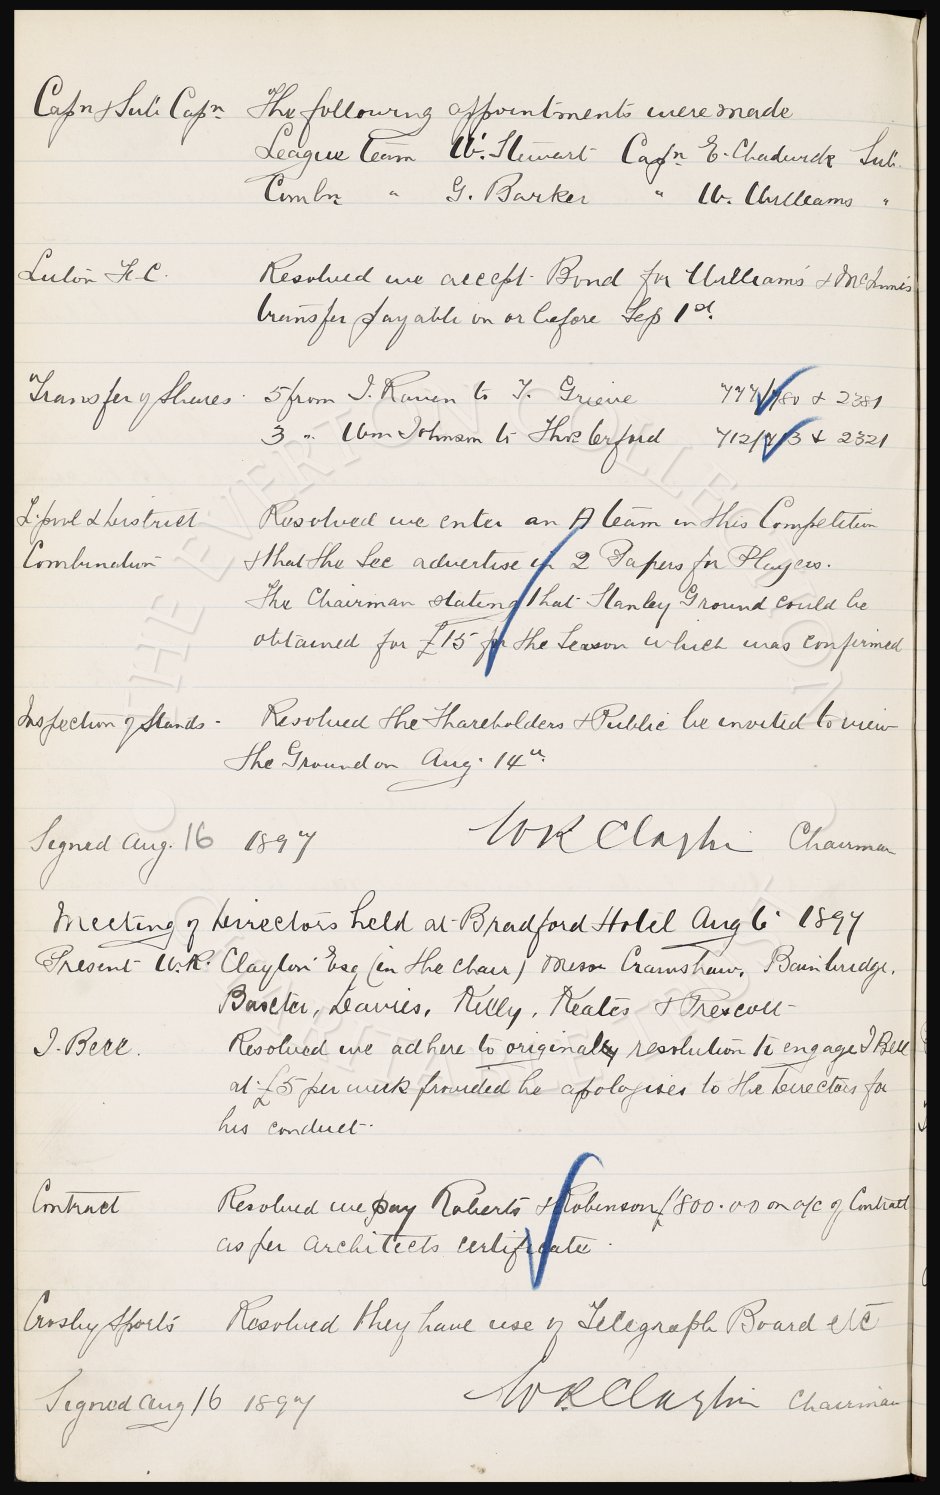 Capn & Sub Capn The following appointments were made
League team W. Stewart Capn E. Chadwick Sub.
Combn " G. Barker " W. Williams "
Luton F.C. Resolved we accept Bond for Williams & McInnis
transfer payable on or before Sep 1st.
Transfer of Shares. 5 from J. Raven to T. Grieve 777/780 & 2381
3 " Wm Johnson to Thos 712/713 & 2321
L.pool & District Resolved we enter an A team in this Competition
Combination & that the Sec advertise in 2 Papers for Players.
The Chairman stating that Stanley Ground could be
obtained for £15 for the Season which was confirmed
Inspection of Stands - Resolved the Shareholders & Public be invited to view
the Ground on Aug. 14th.
Signed Aug. 16 1897 W R Clayton Chairman
Meeting of Directors held at Bradford Hotel Aug 6 1897
Present W.R. Clayton Esq (in the chair) Messrs Crawshaw, Bainbridge,
Baxter, Davies, Kelly, Keates & Prescott
J. Bell. Resolved we adhere to original resolution to engage J Bell
at £5 per week provided he apologises to the Directors for
his conduct.
Contract Resolved we pay Roberts & Robinson £800.0.0 on a/c of Contract
as per architects certificate.
Crosby Sports Resolved they have use of Telegraph Board etc
Signed Aug 16 1897 W R Clayton Chairman
THE EVERTON COLLECTION
CHARITABLE TRUST